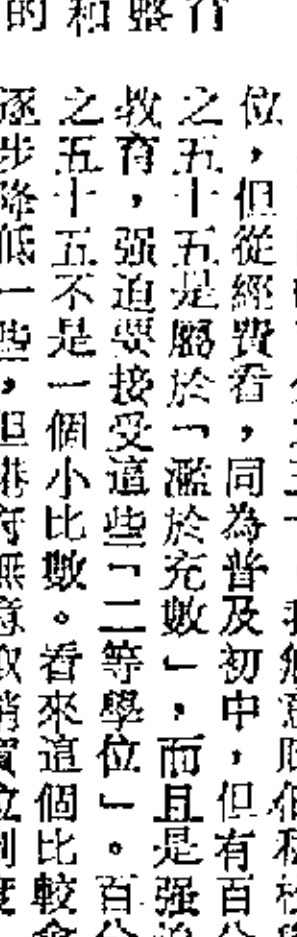 位，但從經費看，同為普及初中，但有百分
之五十五是屬於「濫於充數」，而且是强迫
教育，强迫要接受這些「二等學位」。百分
之五十五不是一個小比數。看來這個比較會
逐步降低一些，但港府無意取消買位制度
整
和
的